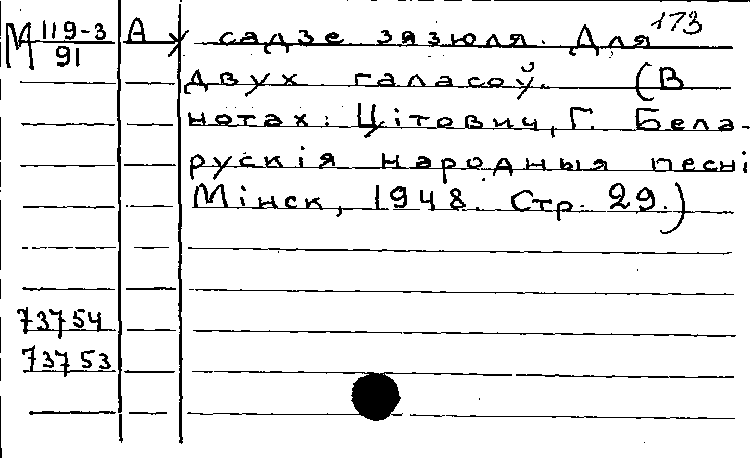 173
М 119-3/91 А у садзе зязюля. Для
двух галасоў. (В
нотах: Цітович, Г. Бела-
рускія народныя песні
Мінск, 1948. Стр. 29.)
73754
73753